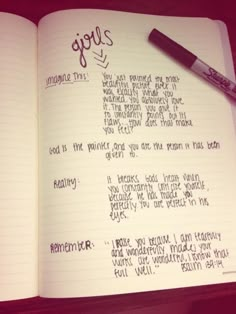 girls
Imagine This: You just painted the most
beautiful picture ever. It
was exactly what you
wanted. You absolutely love
it. The person you give it
to constantly points out its
flaws. How does that make
you feel?
God is the painter, and you are the person it has been
given to.
Reality: It breaks God's heart when
you constantly criticize yourself,
because he has made you
perfectly. You are perfect in his
eyes.
Remember: "I praise you because I am fearfully
and wonderfully made; your
works are wonderful, I know that
full well." Psalm 139:14
Sharpie